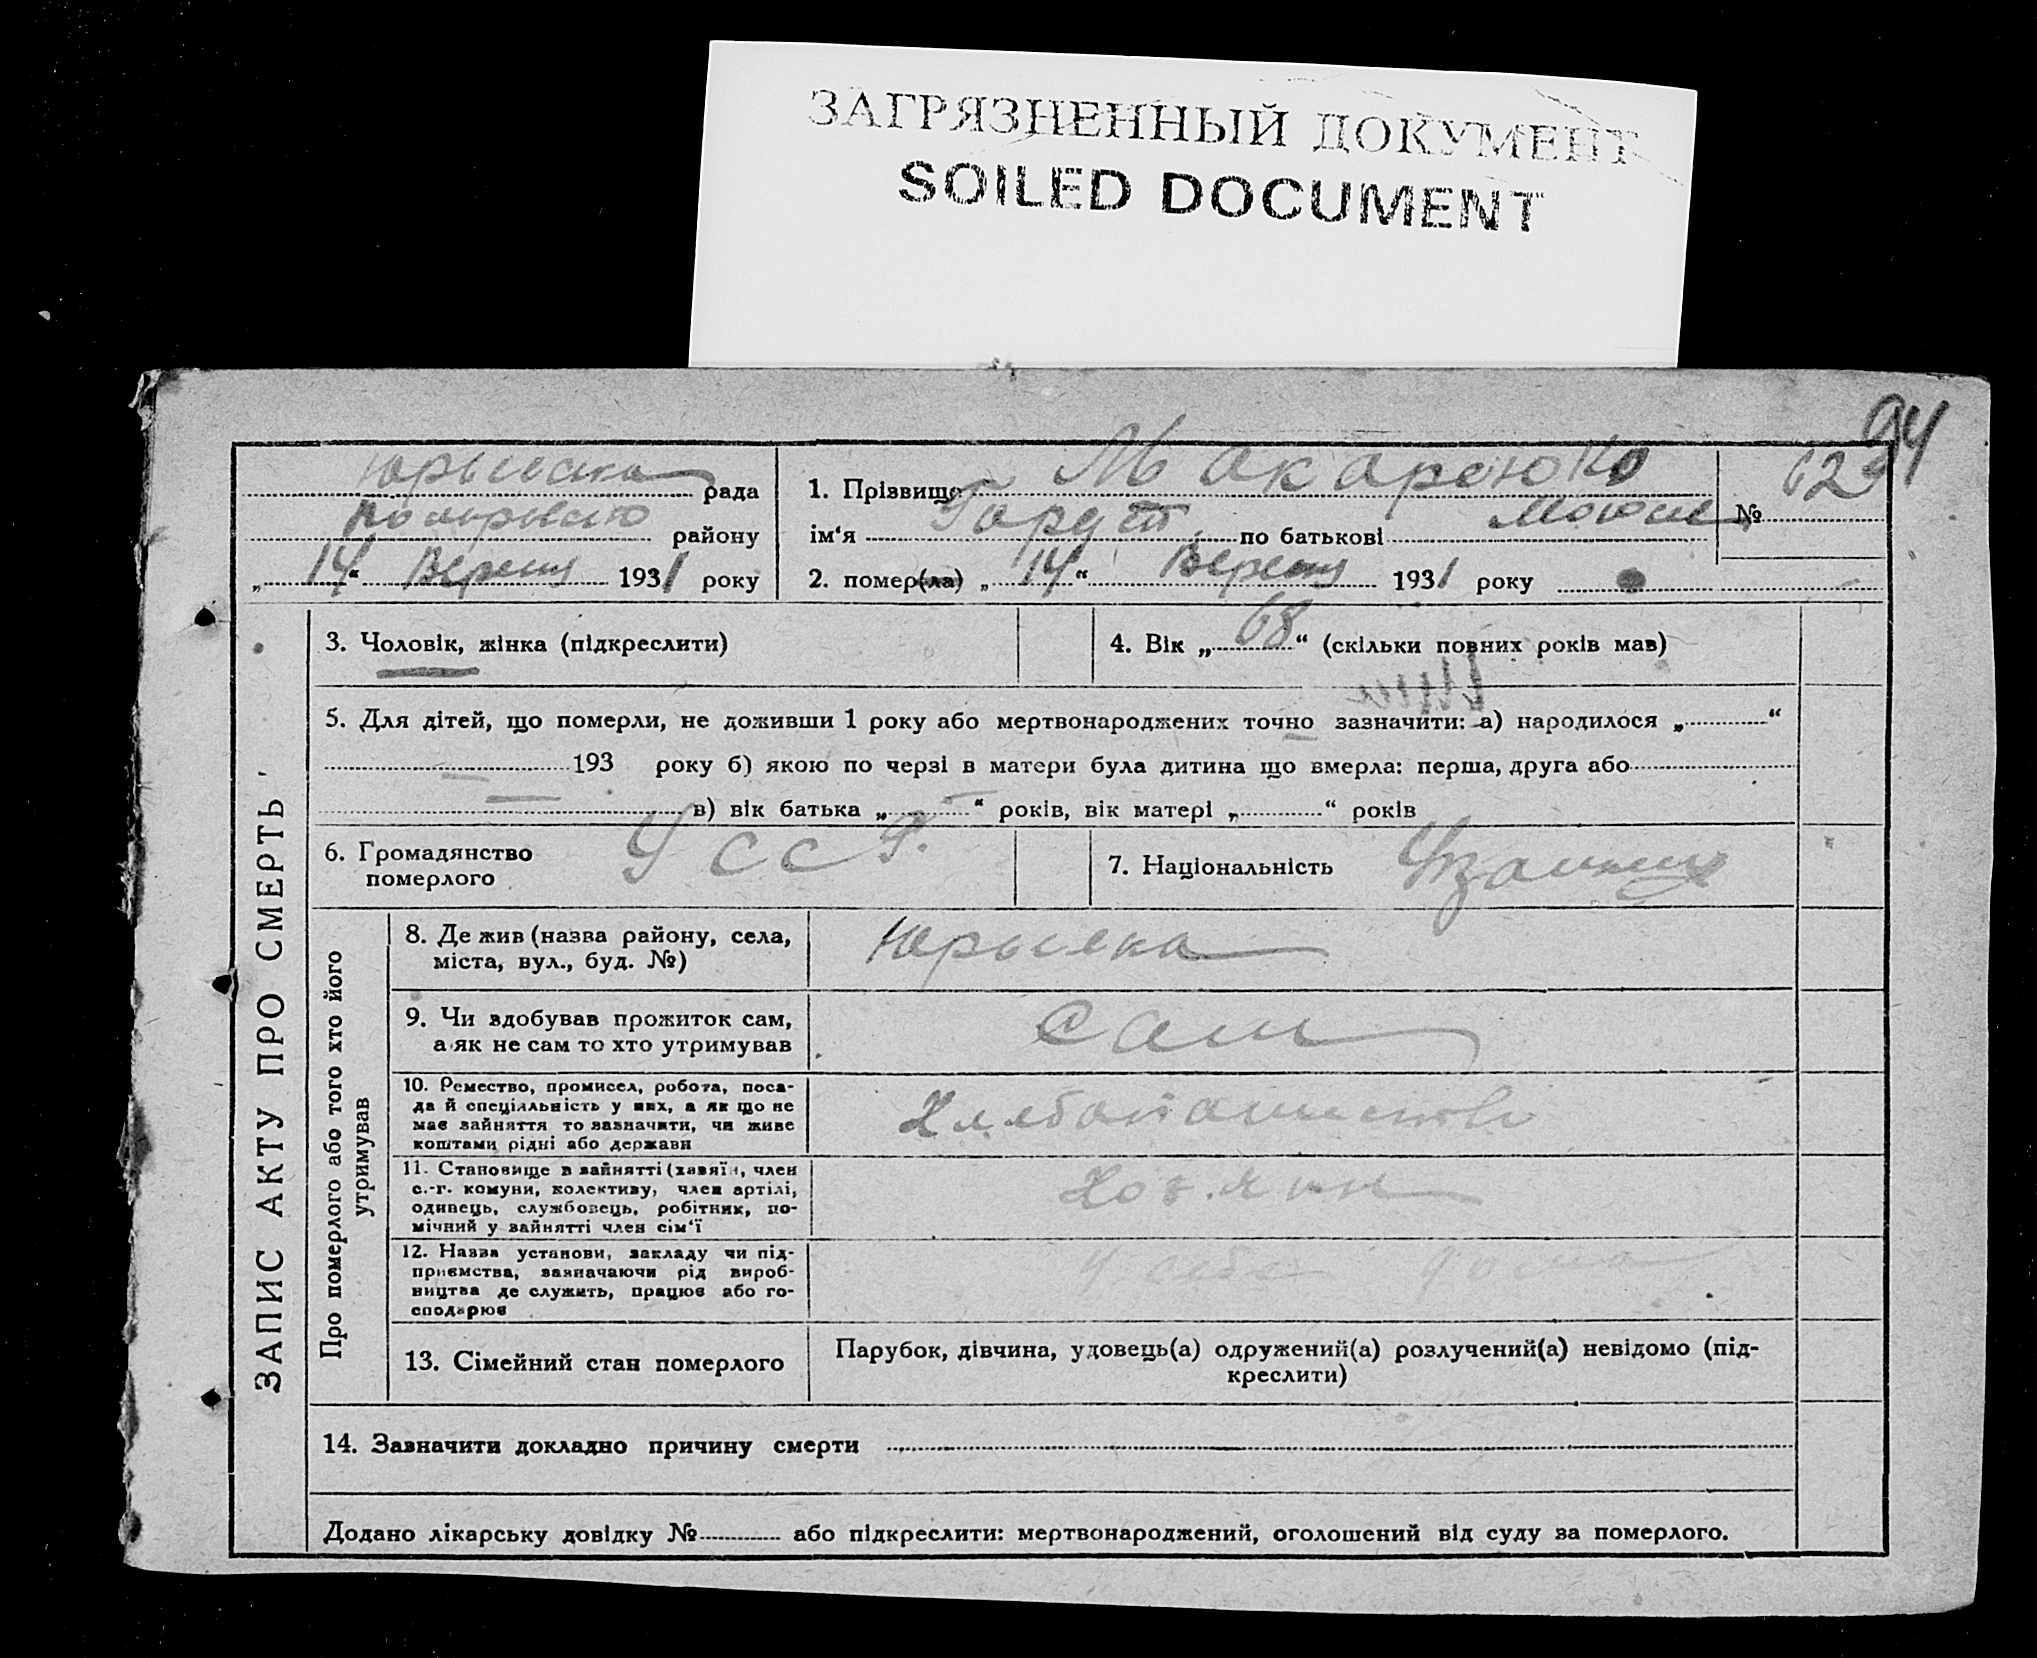 ЗАГРЯЗНЕННЫЙ ДОКУМЕНТ
SOILED DOCUMENT
94
рада
району
„14“ 1931 року
1. Прізвище
ім‘я по батькові
2. помер(ла) „14“ 1931 року
№ 62
ЗАПИС АКТУ ПРО СМЕРТЬ
3. Чоловік, жінка (підкреслити)
4. Вік „68“ (скільки повних років мав)
5. Для дітей, що померли, не доживши 1 року або мертвонароджених точно зазначити: а) народилося „ “
193 року б) якою по черзі в матери була дитина що вмерла: перша, друга або
в) вік батька „ “ років, вік матері „ “ років
6. Громадянство
померлого
УССР.
7. Національність
Про померлого або того хто його
утримував
8. Де жив (назва району, села,
міста, вул., буд. №)
9. Чи здобував прожиток сам,
а як не сам то хто утримував
сам
10. Ремество, промисел, робота, поса-
да й спеціяльність у них, а як що не
має зайняття то зазначити, чи живе
коштами рідні або держави
11. Становище в зайнятті (хазяїн, член
с.-г. комуни, колективу, член артілі,
одинець, службовець, робітник, по-
мічний у зайнятті член сім‘ї
12. Назва установи, закладу чи під-
приємства, зазначаючи рід вироб-
ництва де служить, працює або го-
сподарює
13. Сімейний стан померлого
Парубок, дівчина, удовець(а) одружений(а) розлучений(а) невідомо (під-
креслити)
14. Зазначити докладно причину смерти
Додано лікарську довідку № або підкреслити: мертвонароджений, оголошений від суду за померлого.